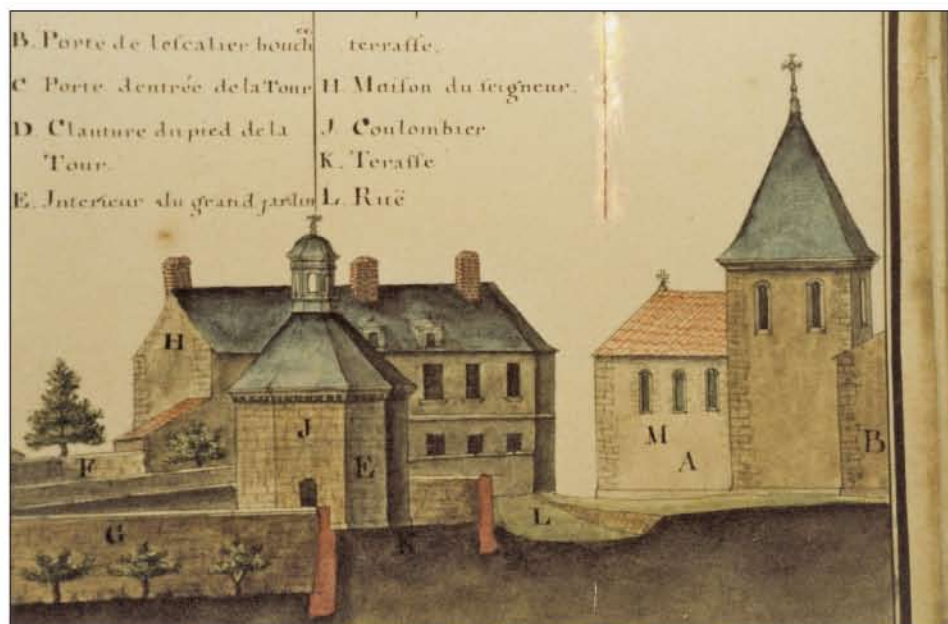 B. Porte de lescalier bouchée
C Porte dentrée de la Tour
D. Clauture du pied de la
Tour.
E. Interieur du grand jardin
terrasse.
H. Maison du seigneur.
J. Coulombier
K. Terasse
L. Ruë
H
J
E
F
G
K
L
M
A
B